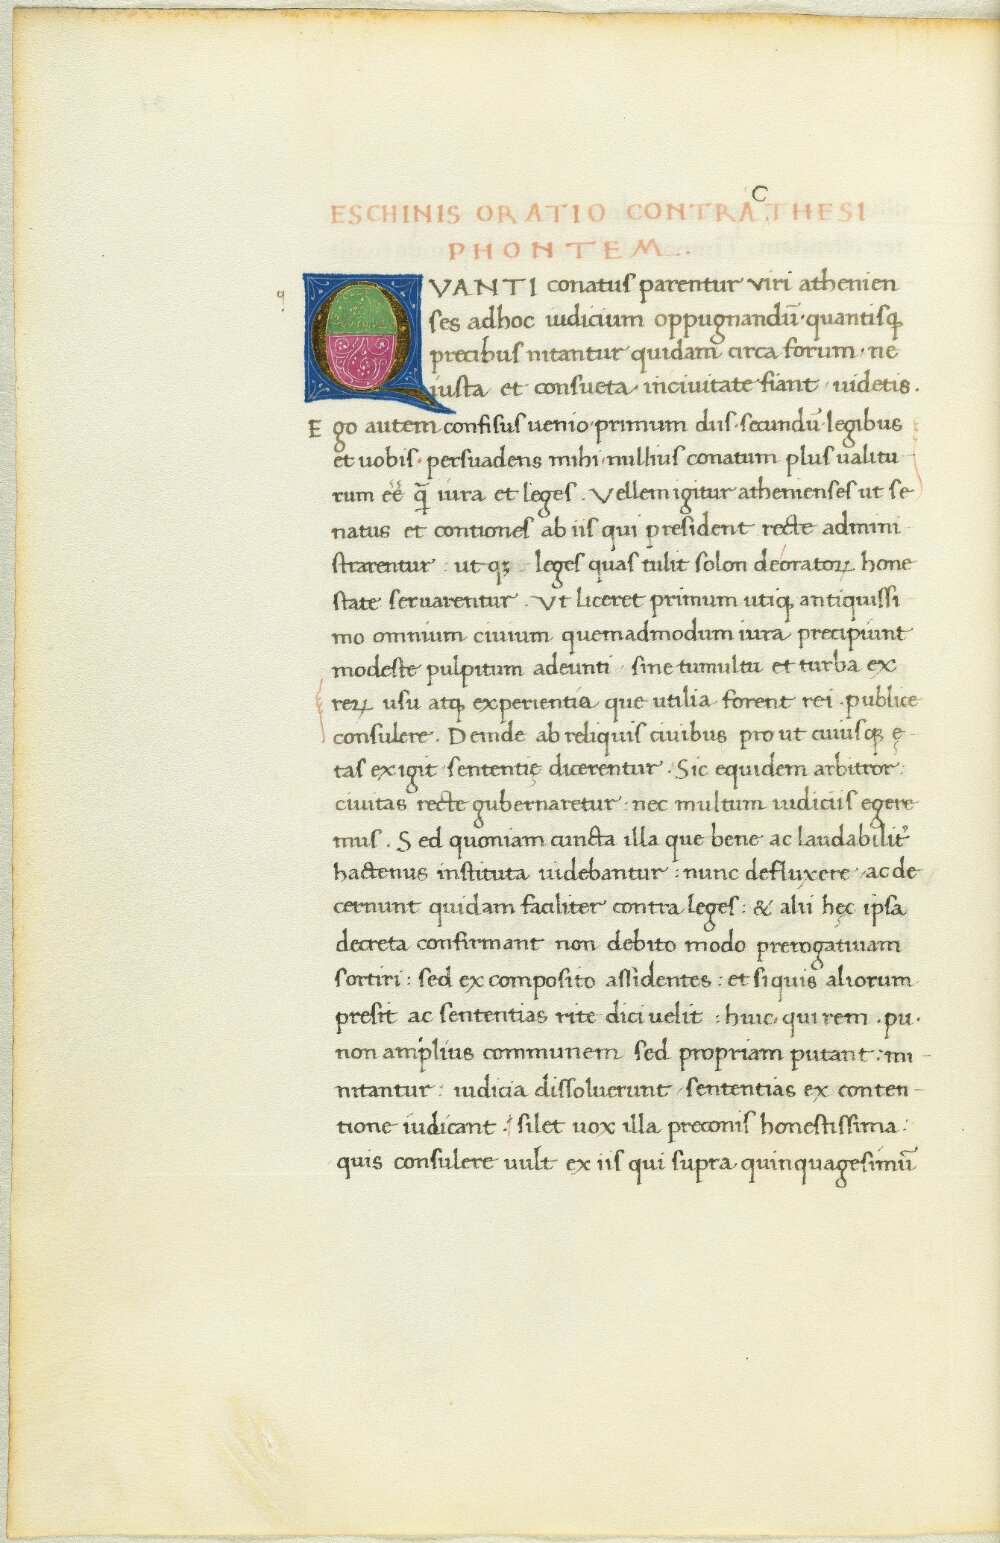 C
ESCHINIS ORATIO CONTRA THESI
PHONTEM..
q
QVANTI conatus parentur viri athenien
ses adhoc iudicium oppugnandū· quantisꝗ
precibus nitantur quidam circa forum· ne
iusta et consueta· incivitate fiant· uidetis.
Ego autem confisus uenio· primum diis· secundū· legibus
et uobis· persuadens mihi· nullius conatum plus ualitu
rum eē̄ q̄ iura et leges. Vellem igitur athenienses ut se
natus et contiones ab iis qui president recte admini
strarentur: ut qꝫ leges quas tulit solon de oratoꝝ hone
state seruarentur. Vt liceret primum utiqꝫ antiquissi
mo omnium ciuium quemadmodum iura precipiunt
modeste pulpitum adeunti· sine tumultu et turba ex
reꝝ usu atqꝫ experientia que utilia forent rei· publice
consulere. Deinde ab reliquis ciuibus pro ut cuiusqꝫ ę
tas exigit sententię dicerentur. Sic equidem arbitror:
ciuitas recte gubernaretur: nec multum iudiciis egere
mus. Sed quoniam cuncta illa que bene ac laudabilit᷑
hactenus instituta uidebantur: nunc defluxere· ac de
cernunt quidam faciliter contra leges: & alii hęc ipsa
decreta confirmant non debito modo prerogatiuam
sortiri: sed ex composito assidentes: et siquis aliorum
presit ac sententias rite dici uelit: huic· qui rem· pu·
non amplius communem sed propriam putant: mi-
nitantur: iudicia dissoluerunt· sententias ex conten-
tione iudicant: silet uox illa preconis honestissima:
quis consulere uult ex iis qui supra quinquagesimū